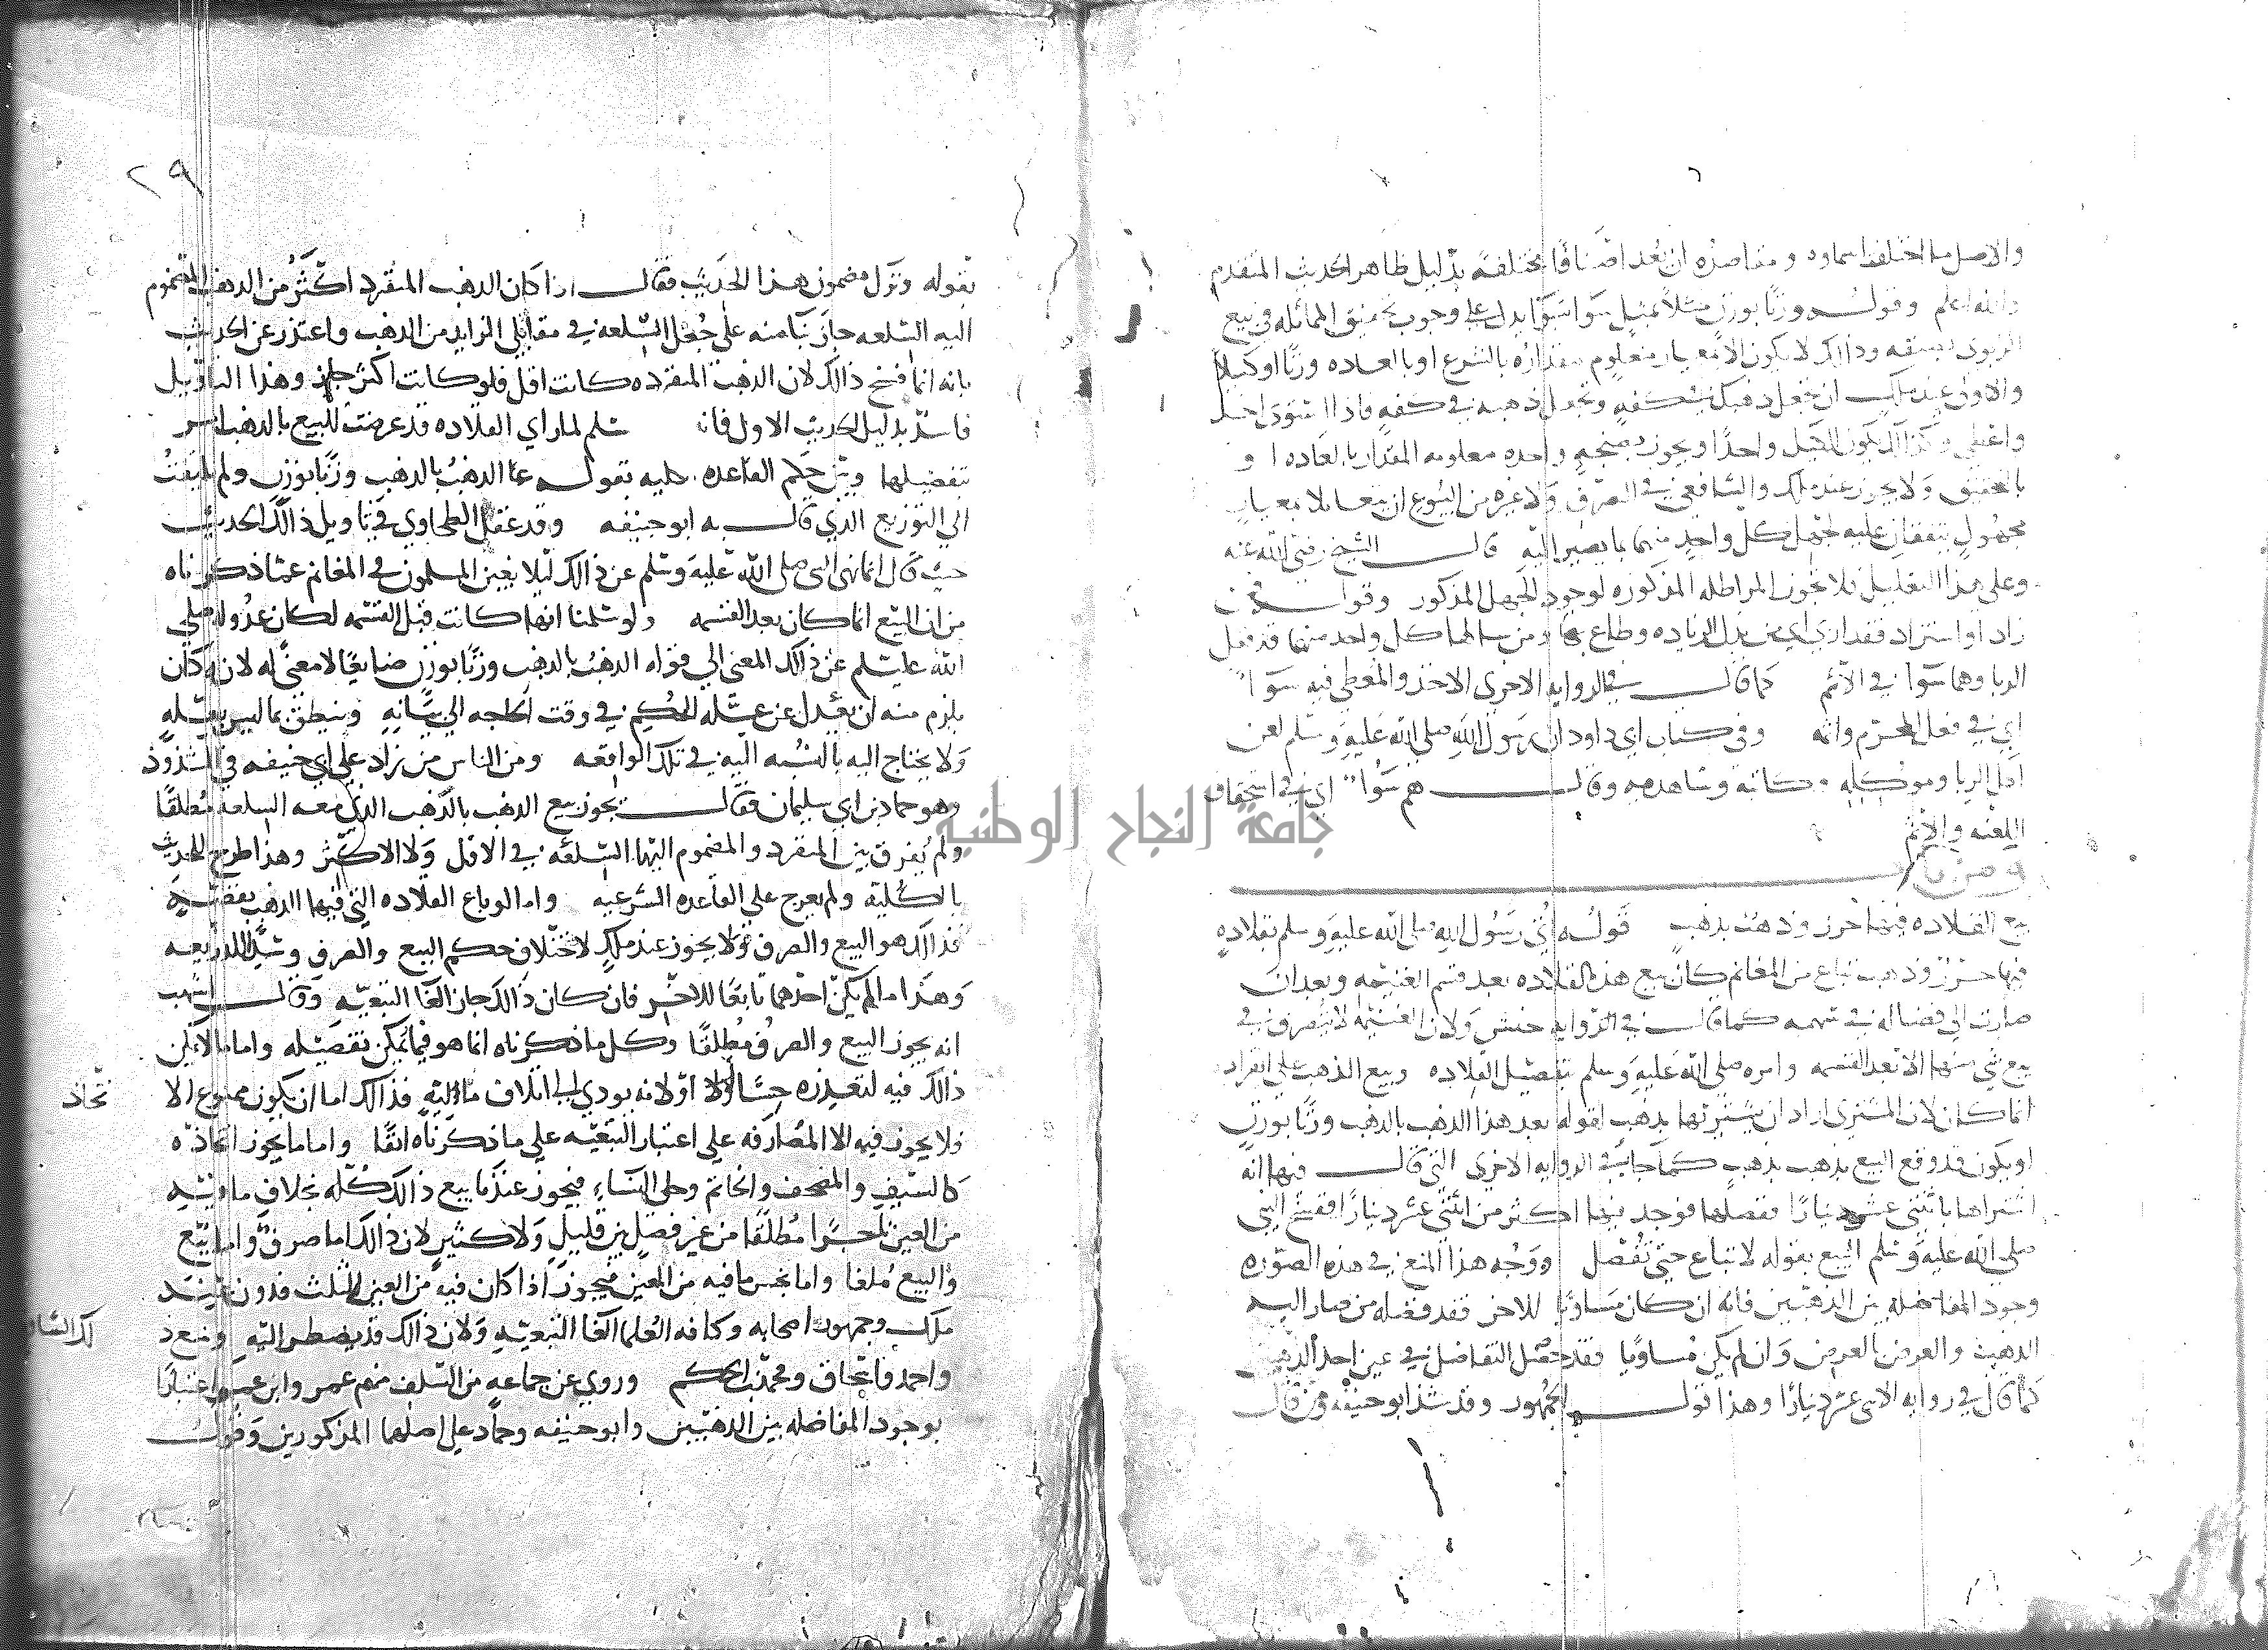 والاصل ما اختلف اسماوه ومقاصده ان تعد اصنافا مختلفة بدليل ظاهر الحديث المتقدم
والله اعلم وقوله وزنا بوزن مثلا بمثل سوا بسوا يدل على وجوب تحقيق المماثله في بيع
الربوي بصنفه وذالك لا يكون الا بمعيار معلوم مقداره بالشرع او بالعاده وزنا او كيلا
والاولى عند ملك ان تجعل ذهبك في كفه وتجعل ذهبه في كفه فاذا استوى اخذ
واعطى وكذالك يكون الكيل واحدا ويجوز بصنجه واحده معلومه المقدار بالعاده او
بالتحقيق ولا يجوز عند ملك والشافعي في الصرف ولا غيره من البيوع ان يتعاملا بمعيار
مجهول يتفقان عليه لجهل كل واحد منهما بما يصير اليه قال الشيخ رضي الله عنه
وعلى هذا التعليل فلا تجوز المراطله المذكوره لوجود الجهل المذكور وقوله فمن
زاد او استزاد فقد اربى اي من بذل الزياده وطاع بها ومن سالها كل واحد منهما قد فعل
الربا وهما سوا في الاثم كما قال في الروايه الاخرى الاخذ والمعطي فيه سوا
اي في فعل المحرم واثمه وفي كتاب ابي داود ان رسول الله صلى الله عليه وسلم لعن
اكل الربا وموكله وكاتبه وشاهديه وقال هم سوا اي في استحقاق
اللعنه والاثم
ومن باب
بيع القلاده فيها خرز وذهب بذهب قوله اتي رسول الله صلى الله عليه وسلم بقلاده
فيها خرز وذهب تباع من المغانم كان بيع هذه القلاده بعد قسم الغنيمه وبعد ان
صارت الى فضاله في سهمه كما قال في الروايه حنش ولان الغنيمه لا يتصرف في
بيع شي منها الا بعد القسمه وامره صلى الله عليه وسلم بتفصيل القلاده وبيع الذهب على انفراد
انما كان لان المشتري اراد ان يشتريها بذهب لقوله بعد هذا الذهب بالذهب وزنا بوزن
او يكون قد وقع البيع بذهب بذهب كما جا في الروايه الاخرى التي قال فيها انه
اشتراها باثنتي عشر دينارا ففصلها فوجد فيها اكثر من اثنتي عشر دينارا ففسخ النبي
صلى الله عليه وسلم البيع بقوله لا تباع حتى تفصل ووجه هذا المنع في هذه الصوره
وجود المفاضله بين الذهبين فانه ان كان مساويا للاخر فقد فضله من صار اليه
الذهب والعرض بالعرض وان لم يكن مساويا فقد حصل التفاضل في عين احد الذهبين
كما قال في روايه الاثني عشر دينارا وهذا قول الجمهور وقد شذ ابو حنيفه ومن قال
٢٩
بقوله وترك مضمون هذا الحديث فقال اذا كان الذهب المنفرد اكثر من الذهب المضموم
اليه السلعه جاز بنا منه على جعل السلعه في مقابلة الزايد من الذهب واعتذر عن الحديث
بانه انما فسخ ذالك لان الذهب المنفرده كانت اقل فلو كانت اكثر جاز وهذا التاويل
فاسد بدليل الحديث الاول فانه سلم لما راي القلاده قد عرضت للبيع بالذهب امر
بتفصيلها وبين حكم القاعده عليه بقوله عم الذهب بالذهب وزنا بوزن ولم يلتفت
الى التوزيع الذي قال به ابو حنيفه وقد غفل الطحاوي في تاويل ذالك الحديث
حيث قال انما نهى النبي صلى الله عليه وسلم عن ذالك ليلا يغبن المسلمون في المغانم عما ذكرناه
من ان البيع انما كان بعد القسمه ولو سلمنا انها كانت قبل القسمه لكان عدوله صلى
الله عليه سلم عن ذالك المعنى الى قوله الذهب بالذهب وزنا بوزن ضايعا لا معنى له لانه كان
يلزم منه ان يعدل عن علة الحكم في وقت الحاجه الى بيانه وينطق بما ليس بعلة
ولا يحتاج اليه بالنسبه اليه في تلك الواقعه ومن الناس من زاد على ابي حنيفه في الشذوذ
وهو حماد بن ابي سليمان فقال يجوز بيع الذهب بالذهب الذي معه السلعه مطلقا
ولم يفرق بين المنفرد والمضموم اليها السلعه في الاقل ولا الاكثر وهذا طرح للحديث
بالكلية ولم يعرج على القاعده الشرعيه واما لو باع القلاده التي فيها الذهب بفضة
فذالك هو البيع والصرف ولا يجوز عند ملك لاختلاف حكم البيع والصرف وسد الذريعه
وهذا ما لم يكن احدهما تابعا للاخر فان كان ذالك جاز الغا للتبعية وقال اشهب
انه يجوز البيع والصرف مطلقا وكل ما ذكرناه انما هو فيما يمكن تفصيله واما ما لا يمكن
ذالك فيه لتعذره حسا او لانه يودي الى اتلاف ماليته فذالك اما ان يكون ممنوع الا
تخاذ
فلا يجوز فيه الا المصارفه على اعتبار التبعيه على ما ذكرناه انفا واما ما يجوز اتخاذه
كالسيف والمصحف والخاتم وحلي النساء فيجوز عندنا بيع ذالك كله بخلاف ما فيه
من العين نجزا مطلقا من غير فصل بين قليل ولا كثير لان ذالك اما صرف واما بيع
والبيع ملغا واما بجنس ما فيه من العين فيجوز اذا كان فيه من العين الثلث فدون عند
ملك وجمهور اصحابه وكافه العلما الغا للتبعيه ولان ذالك قد يضطر اليه ومنع ذ
لك الشا
واحمد واسحاق ومحمد بن الحكم وروي عن جماعه من السلف منهم عمر وابن عمر اعتبارا
بوجود المفاضله بين الذهبين وابو حنيفه وحماد على اصلهما المذكورين وقوله
جامعة النجاح الوطنية